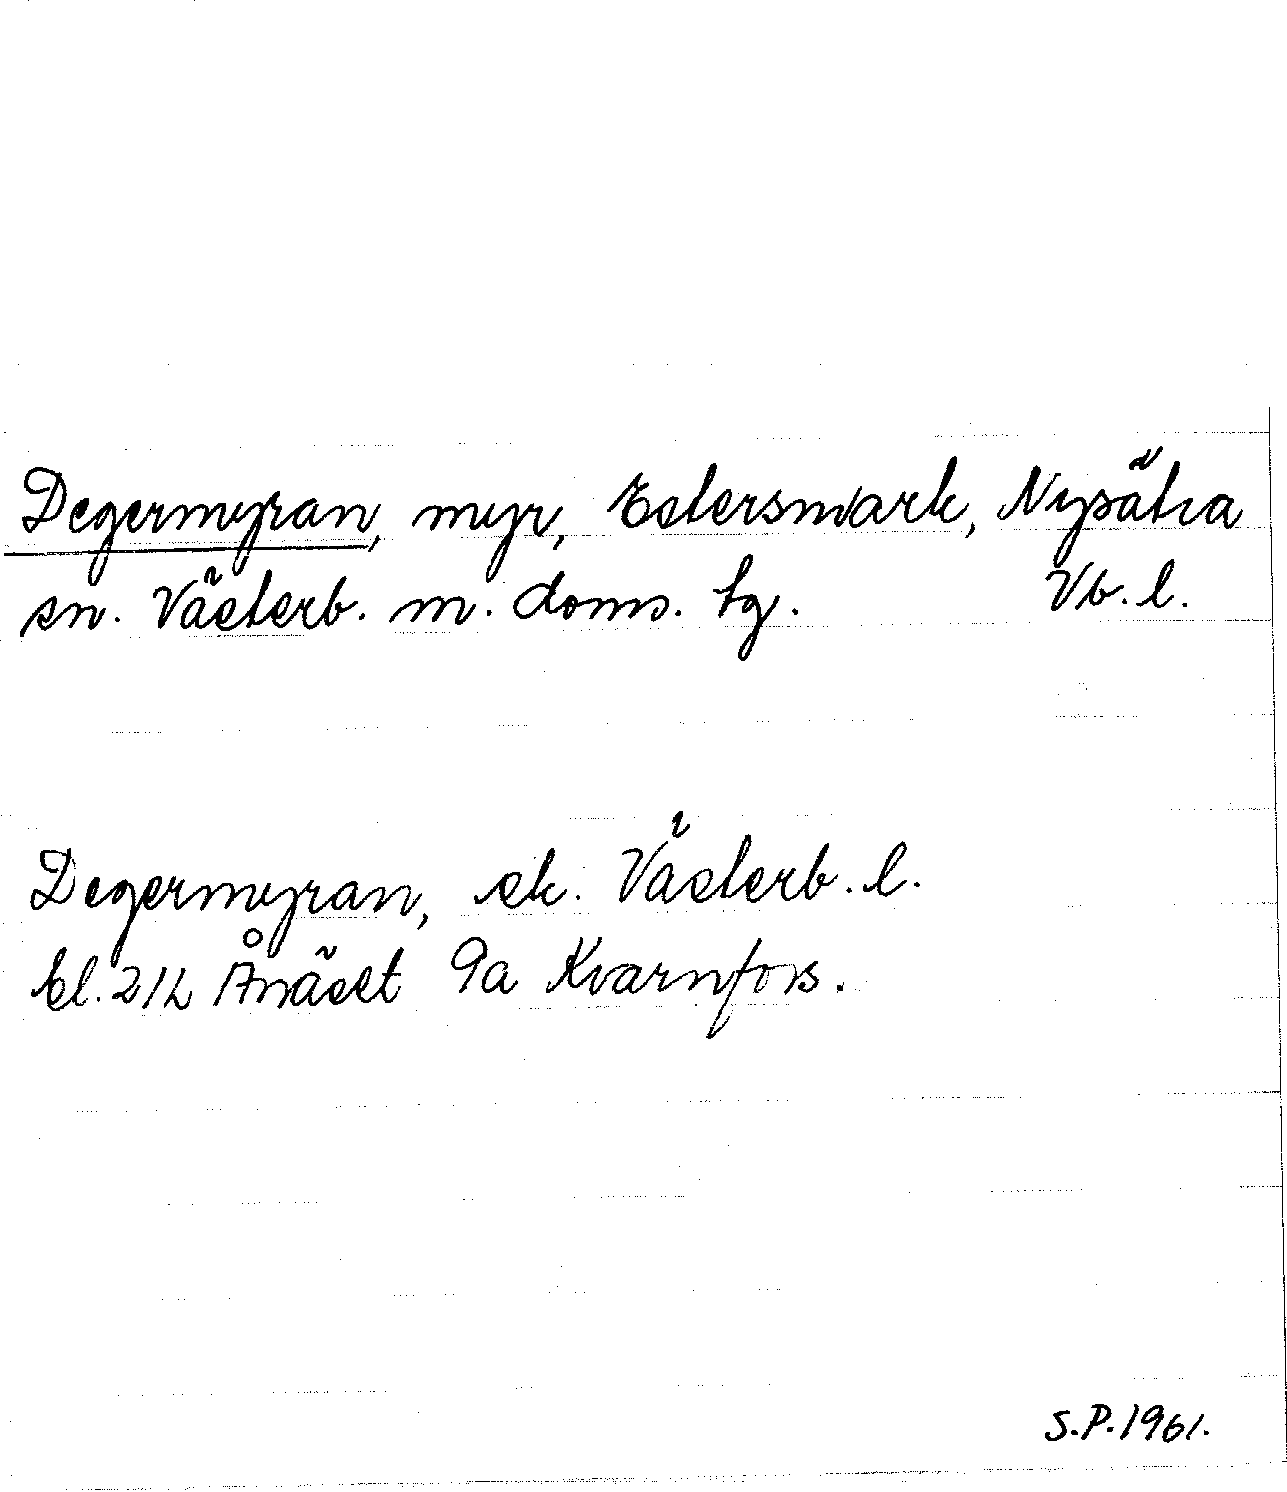 Degermyran, myr, Estersmark, Nysätra
sn. Västerb. m. doms. tg. Vb. l.
Degermyran, ek. Västerb. l.
bl. 21L Ånäset 9a Kvarnfors.
S.P. 1961.